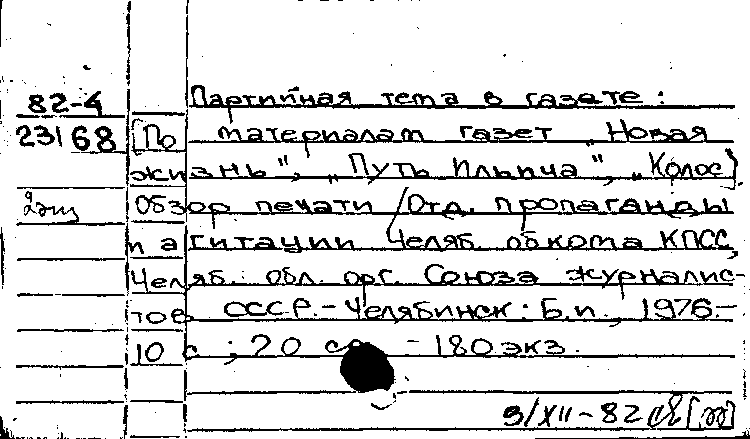 Партийная тема в газете:
82-4
23168 [По материалам газет „Новая
жизнь", „Путь Ильича", „Колос]
2экз Обзор печати / Отд. пропаганды
и агитации Челяб. обкома КПСС,
Челяб. обл. орг. Союза журналис-
тов СССР. - Челябинск: Б.и., 1976. -
10 с ; 20 см - 180 экз.
3/XII-82